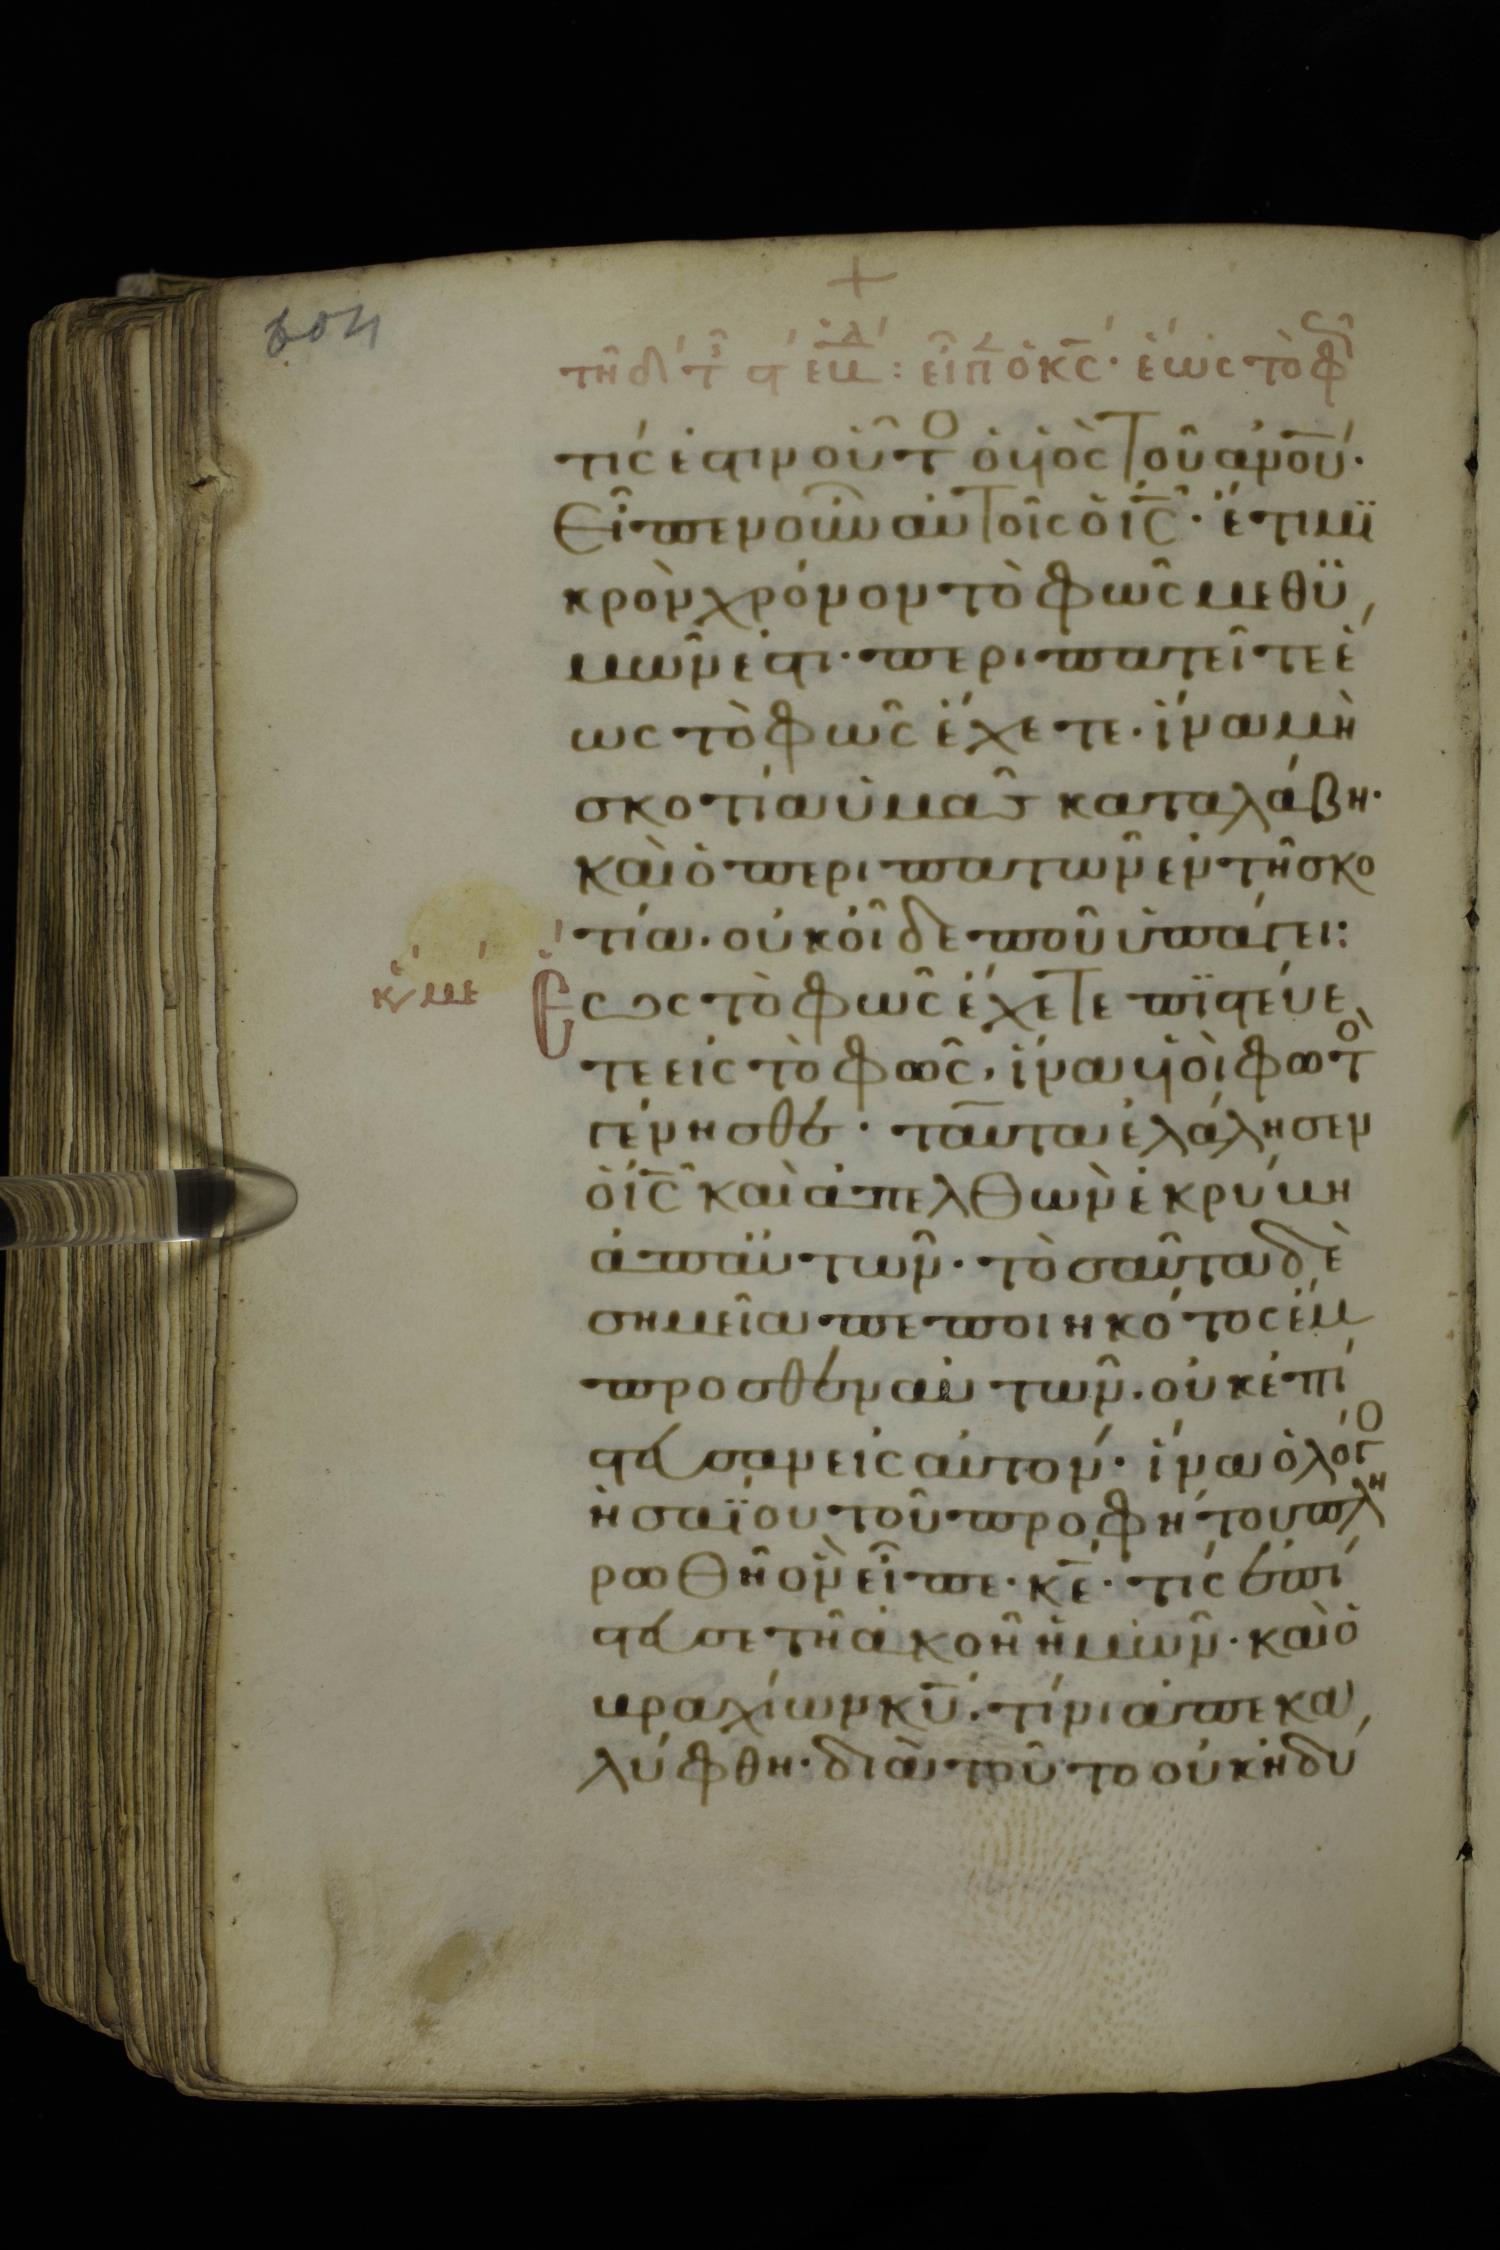 604
+
τίς ἐστιν οὗτο ὁ υἱὸς τοῦ ἀνου·
Εἶπεν οὖν αὐτοῖς ὁ ις· ἔτι μϊ
κρὸν χρόνον τὸ φῶς μεθϋ
μῶν ἐστι· περιπατεῖτε ἕ
ως τὸ φῶς ἔχετε· ἵνα μὴ
σκοτία ὑμᾶς καταλάβη·
καὶ ὁ περιπατῶν ἐν τῆ σκο
τία. οὐκ οἶδε ποῦ ὑπάγει:
κφ με
Εως τὸ φῶς ἔχετε πϊστεύε
τε εἰς τὸ φῶς, ἵνα υἱοὶ φωτὸ
γένησθε· ταῦτα ἐλάλησεν
ὁ ις καὶ ἀπελθὼν ἐκρύβη
ἀπ αὐτῶν· τὸσαῦτα δὲ
σημεῖα πεποιηκότος ἔμ
προσθεν αὐτῶν. οὐκ ἐπί
στευσαν εἰς αὐτον· ἵνα ὁ λόγο
ἡσαΐου τοῦ προφήτου πλη
ρωθῆ ὃν εἶπε· κε· τίς ἐπί
στευσε τῆ ἀκοῆ ἡμῶν· καὶ ὁ
βραχίων κυ· τίνι ἀπεκα
λύφθη· διὰ τοῦτο οὐκ ἠδύ